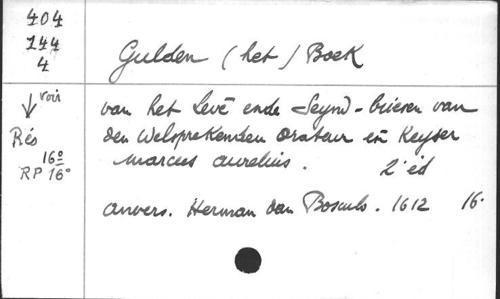 404
244
4
Gulden (het) Boek
↓ voir
Rés
16º
RP 16º
van het Levē ende Seynd-brieven van
den Welsprekenden Orateur en Keyser
Marcus Aurelius. 2º éd
Anvers. Herman van 1612 16.